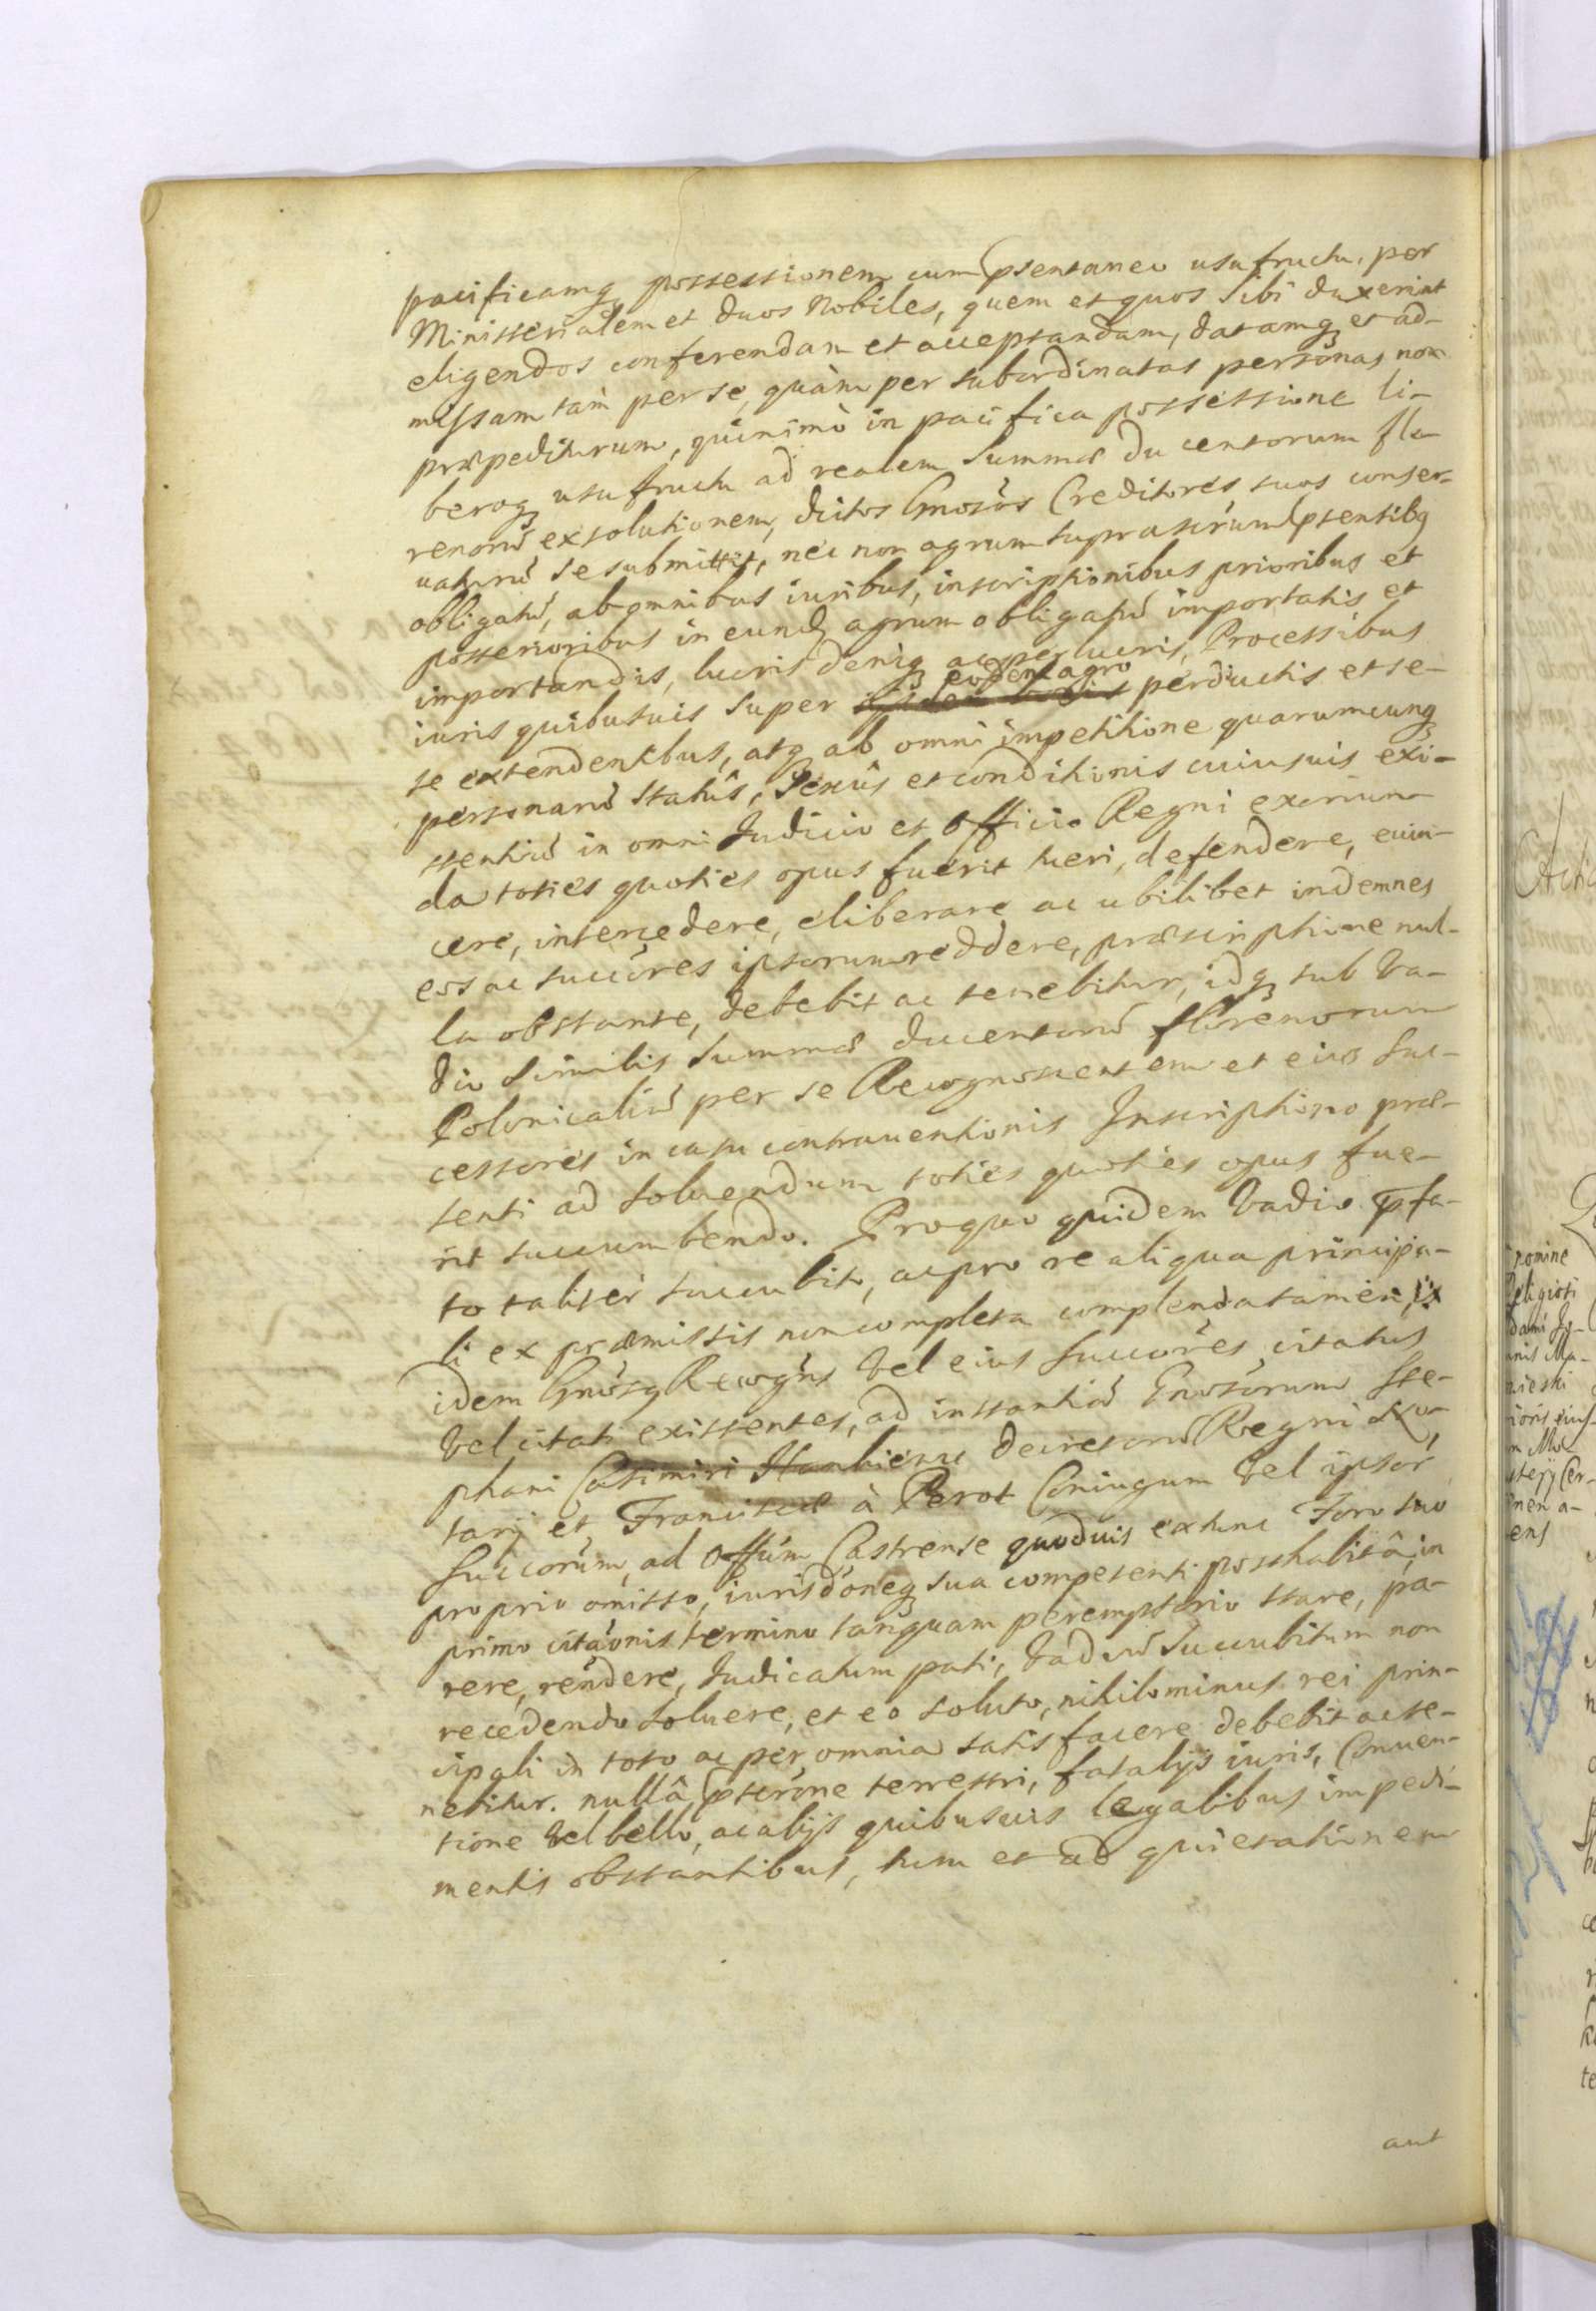 pacificamq possessionem cum pstentaneo usufructu, per
Ministerialem et duos Nobiles, quem et quos sibi duxerint
eligendos conferendam et acceptandam, datamq et ad-
missam tàm per se, quàm per subordinatas personas non
præpediturum, quinimò in pacifica possessione li-
beroq usufructu ad realem Summæ ducentorum flo-
renorũ exsolutionem, dictos Gnosos Creditores suos conser-
uaturũ se submittit, nec non agrum suprascrum pstentibq
obligatũ, ab omnibus iuribus, inscriptionibus prioribus et
posterioribus in eundẽ agrum obligatũ importatis et
importandis, lucris deniq ac perlucris, Processibus
iuris quibusuis super eodem agro perductis et se-
se extendentibus, atq ab omni impetitione quarumcunq
personarũ Statûs, Sexûs et conditionis cuiusuis exi-
stentiũ in omni Judicio et Officio Regni exeriun-
da toties quoties opus fuerit tueri, defendere, euin-
cere, intercedere, eliberare ac ubilibet indemnes
eos ac succôres ipsorum reddere, præscriptione nul-
la obstante, debebit ac tenebitur, idq sub Va-
dio similis Summæ ducentorũ florenorum
Polonicaliũ per se Recognoscentem et eius Suc-
cessores in casu contrauentionis Inscriptioni præ-
senti ad soluendum toties quoties opus fue-
rit succumbendo. Proquo quidem Vadio pfa-
to taliter succubito, ac pro re aliqua principa-
li ex præmissis non completa complenda tamen, is
idem Gnosq Recogns Vel eius Succôres, citatus
Vel citati existentes, ad instantiã Gnosorum Ste-
phani Casimiri decretorũ Regni No-
tarij et Franciscæ à Perot Coniugum Vel ipsor
Succorum, ad Offum Castrense quoduis extunc Foro suo
proprio omisso, iurisdoneq sua competenti posthabitâ, in
primo citaonis termino tanquam peremptorio stare, pa-
rere, rendere, Judicatum pati, Vadiũ Succubitum non
recedendo soluere, et eo soluto, nihilominus rei prin-
cipali in toto ac per omnia satisfacere debebit ac te-
nebitur. nullâ pscrione terrestri, fatalijs iuris, Conuen-
tione Vel bello, ac alijs quibusuis legalibus impedi-
mentis obstantibus, tum et ad quietationem
aut
nomine
Religiosi